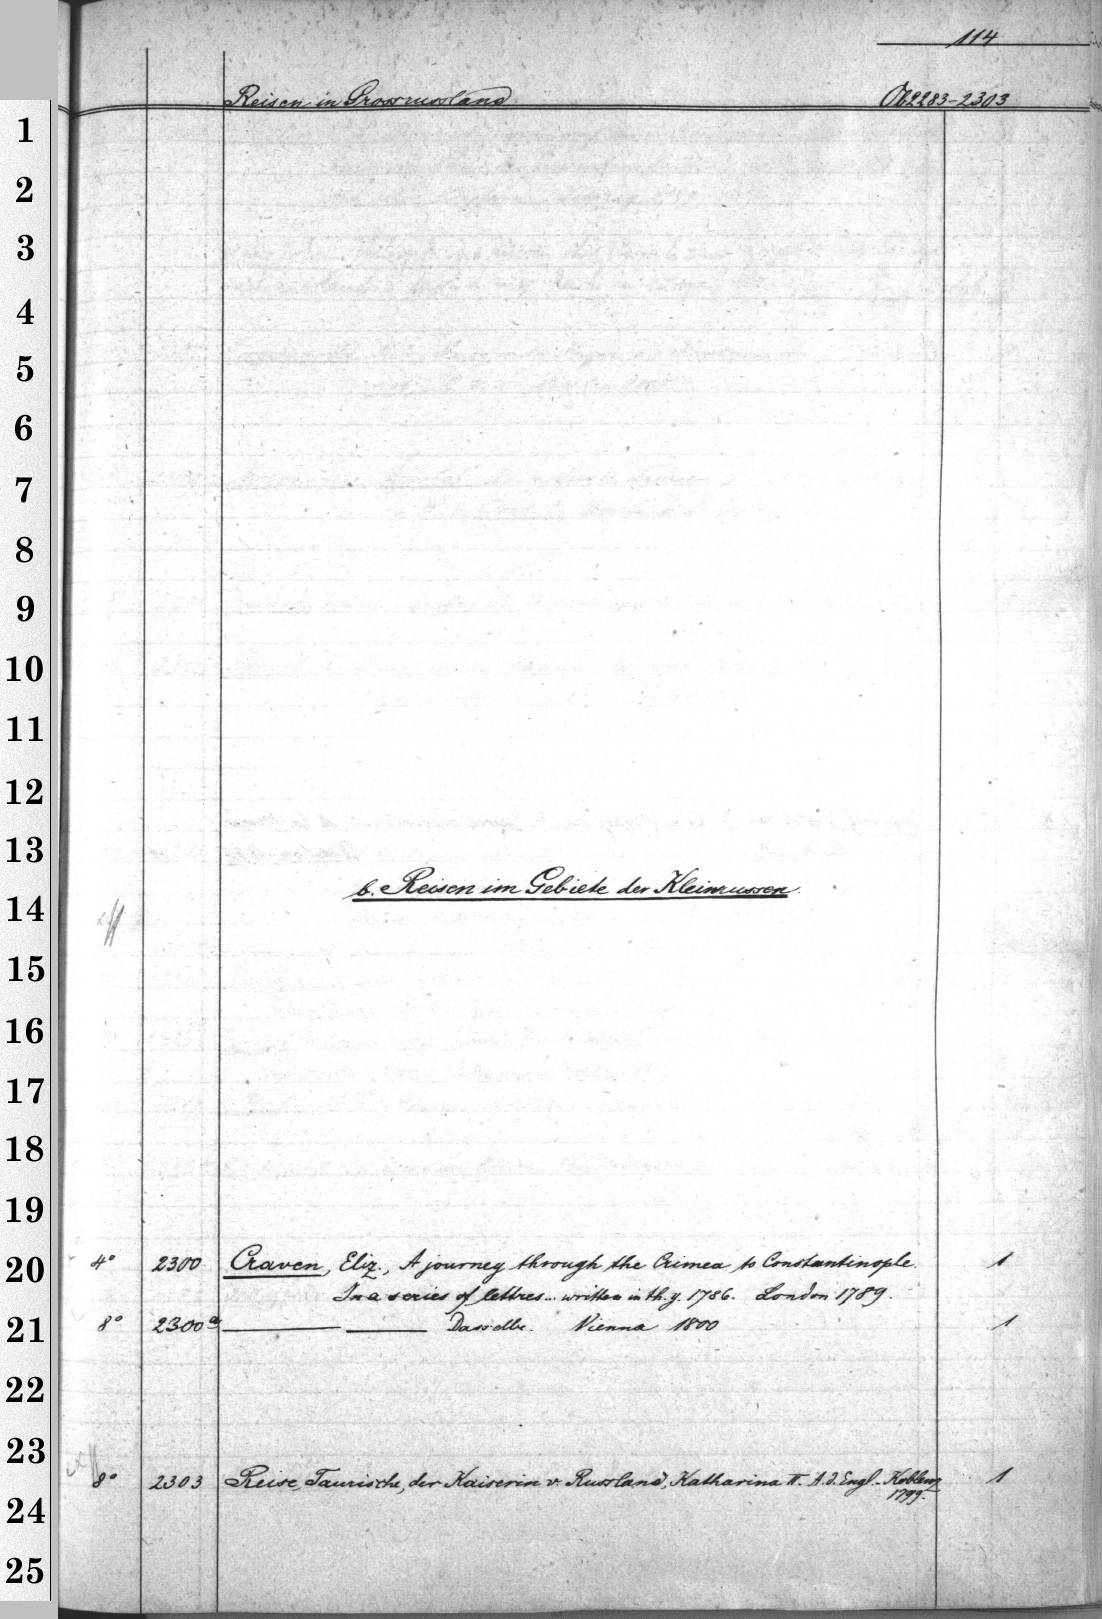 114
Reisen in Grossrussland Oz2283-2303
1
2
3
4
5
6
7
8
9
10
11
12
13
b. Reisen im Gebiete der Kleinrussen.
14
15
16
17
18
19
20 4° 2300 Craven, Eliz., A journey through the Crimea to Constantinople. 1
In a series of lettres... written in th. y. 1786. London 1789.
21 8° 2300a Dasselbe. Vienna 1800 1
22
23
8° 2303 Reise, Taurische, der Kaiserin v. Russland, Katharina II. A. d. Engl. Koblenz 1
1799.
24
25